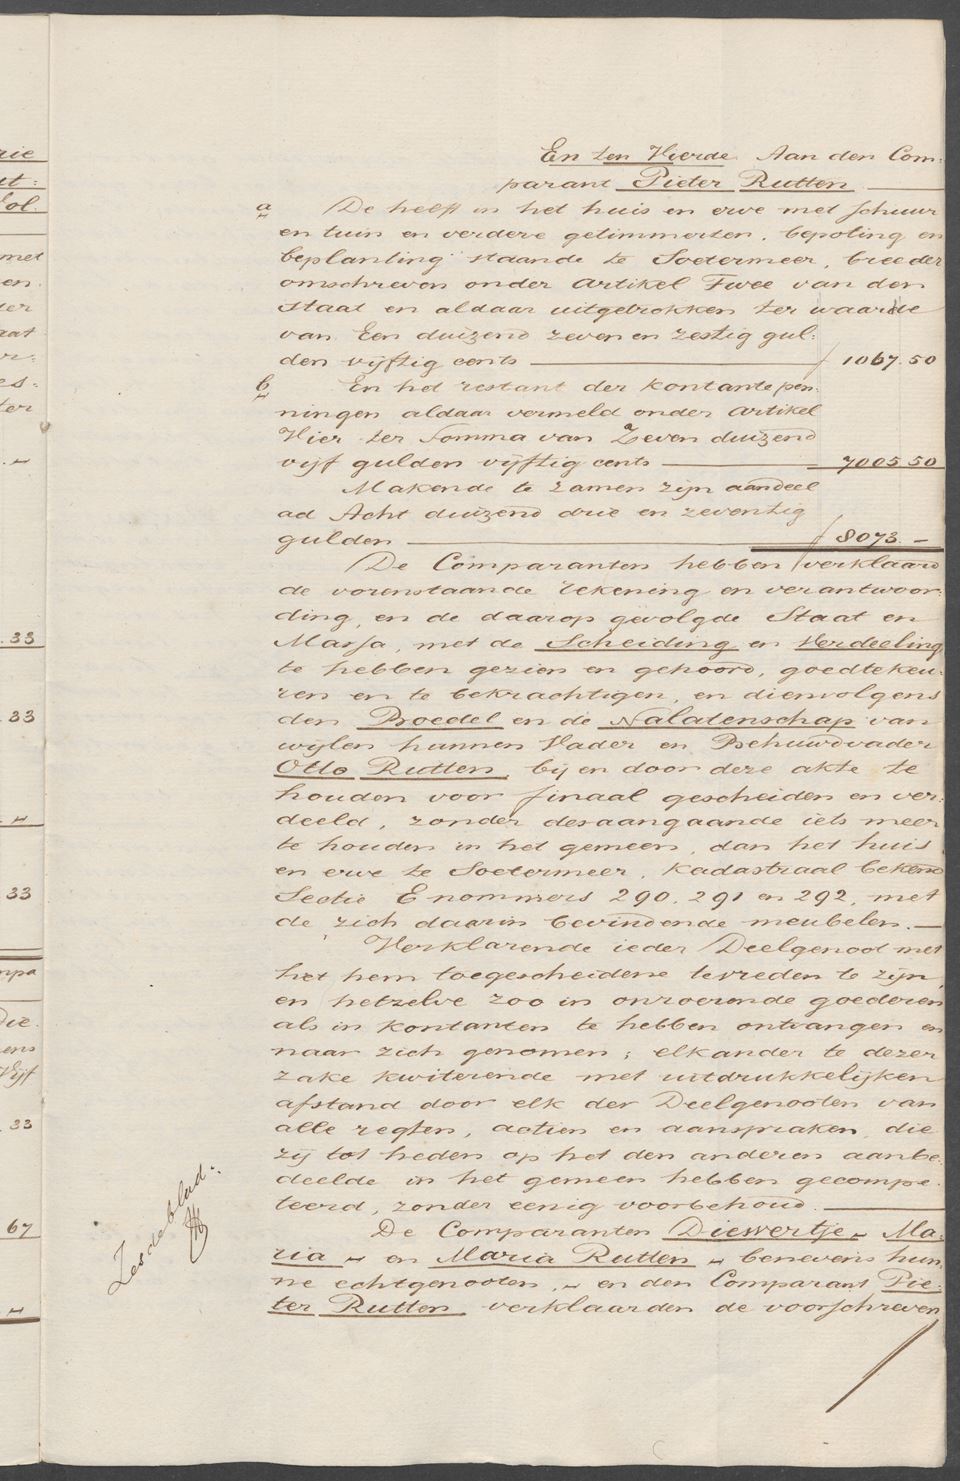 En ten Vierde. Aan den Com-
parant Pieter Rutten.
a De helft in het huis en erve met schuur
en tuin en verdere getimmerten, bepoting en
beplanting staande te Soetermeer, breeder
omschreven onder Artikel Twee van den
Staat en aldaar uitgetrokken ter waarde
van Een duizend zeven en zestig gul:
den vijftig cents 1067.50
b En het restant der kontante pen-
ningen aldaar vermeld onder Artikel
Vier ter Somma van Zeven duizend
vijf gulden vijftig cents 7005.50
Makende te zamen zijn aandeel
ad Acht duizend drie en zeventig
gulden 8073.-
De Comparanten hebben verklaard
de vorenstaande rekening en verantwoor-
ding, en de daarop gevolgde Staat en
Massa, met de Scheiding en Verdeeling
te hebben gezien en gehoord, goedtekeu-
ren en te bekrachtigen, en dienvolgens
den Boedel en de Nalatenschap van
wijlen hunnen Vader en Behuwdvader
Otto Rutten, bij en door deze akte te
houden voor finaal gescheiden en ver-
deeld, zonder desaangaande iets meer
te houden in het gemeen, dan het huis
en erve te Soetermeer, kadastraal bekend
Sectie E nommers 290. 291 en 292, met
de zich daarin bevindende meubelen.
Verklarende ieder Deelgenoot met
het hem toegescheidene tevreden te zijn,
en hetzelve zoo in onroerende goederen
als in kontanten te hebben ontvangen en
naar zich genomen; elkander te dezer
zake kwiterende met uitdrukkelijken
afstand door elk der Deelgenooten van
alle regten, actien en aanspraken, die
zij tot heden op het den anderen aanbe-
deelde in het gemeen hebben gecompe-
teerd, zonder eenig voorbehoud.
De Comparanten Diewertje - Ma-
ria - en Maria Rutten - benevens hun-
ne echtgenooten, - en den Comparant Pie-
ter Rutten verklaarden de voorschreven
Zesdeblad.
rie
ut:
Sol.
met
en.
der
aat
er:
es:
ter
33
33
33
mpa
Die.
ens
Vijf
33
67